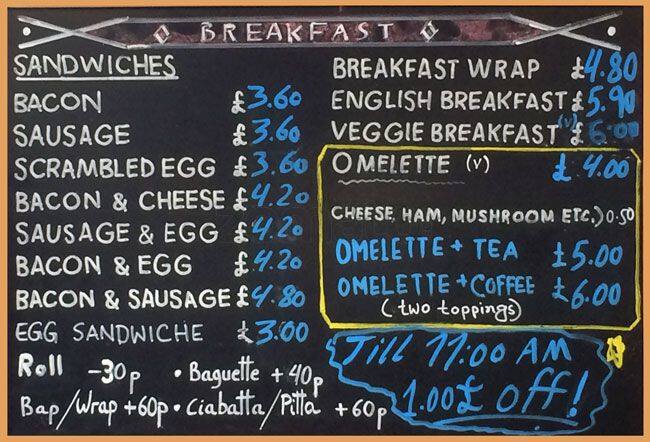 BREAKFAST
SANDWICHES
BACON £3.60
SAUSAGE £3.60
SCRAMBLED EGG £3.60
BACON & CHEESE £4.20
SAUSAGE & EGG £4.20
BACON & EGG £4.20
BACON & SAUSAGE £4.80
EGG SANDWICHE £3.00
Roll -30p • Baguette +40p
Bap/Wrap +60p • Ciabatta/Pitta +60p
BREAKFAST WRAP £4.80
ENGLISH BREAKFAST £5.90
VEGGIE BREAKFAST (v) £6.00
OMELETTE (V) £4.00
CHEESE, HAM, MUSHROOM ETC.) 0.50
OMELETTE + TEA £5.00
OMELETTE + COFFEE £6.00
(two toppings)
Till 11:00 AM
1.00£ off!